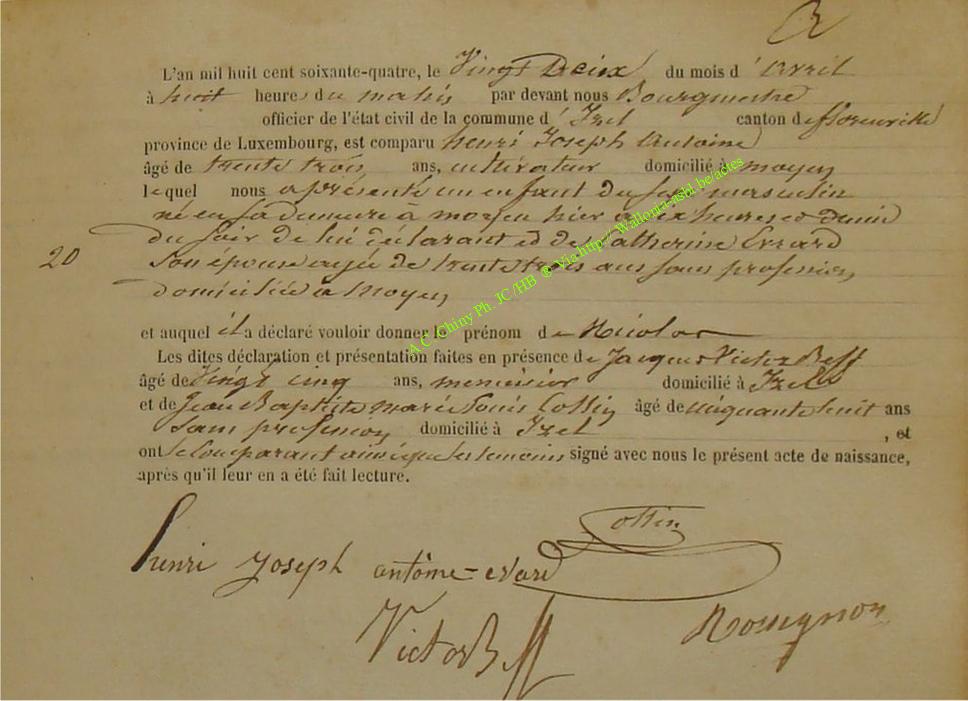 L'an mil huit cent soixante-quatre, le Vingt Deux du mois d'avril
à huit heures du matin par devant nous Bourgmestre
officier de l'état civil de la commune d'Izel canton de florenville
province de Luxembourg, est comparu henri Joseph Antoine
âgé de trente trois ans, cultivateur domicilié à moyen
lequel nous a présenté un enfant du sexe masculin
né en sa demeure à moyen hier à heures et demie
du soir de lui déclarant et de Catherine Evrard
son épouse agée de trente trois ans sans profession
20
domiciliée à moyen
et auquel il a déclaré vouloir donner le prénom de Nicolas
Les dites déclaration et présentation faites en présence de Jacques Victor Beff
âgé de Vingt cinq ans, menuisier domicilié à Izel
et de Jean Baptiste marie Louis Collin âgé de cinquante huit ans
sans profession domicilié à Izel , et
ont le comparant ainsi que les temoins signé avec nous le présent acte de naissance,
après qu'il leur en a été fait lecture.
Collin
henri Joseph antôine=evard
Victor Beff
Rossignon
A C Chiny Ph. JC /HB ® Via http// Wallonia-asbl.be/actes